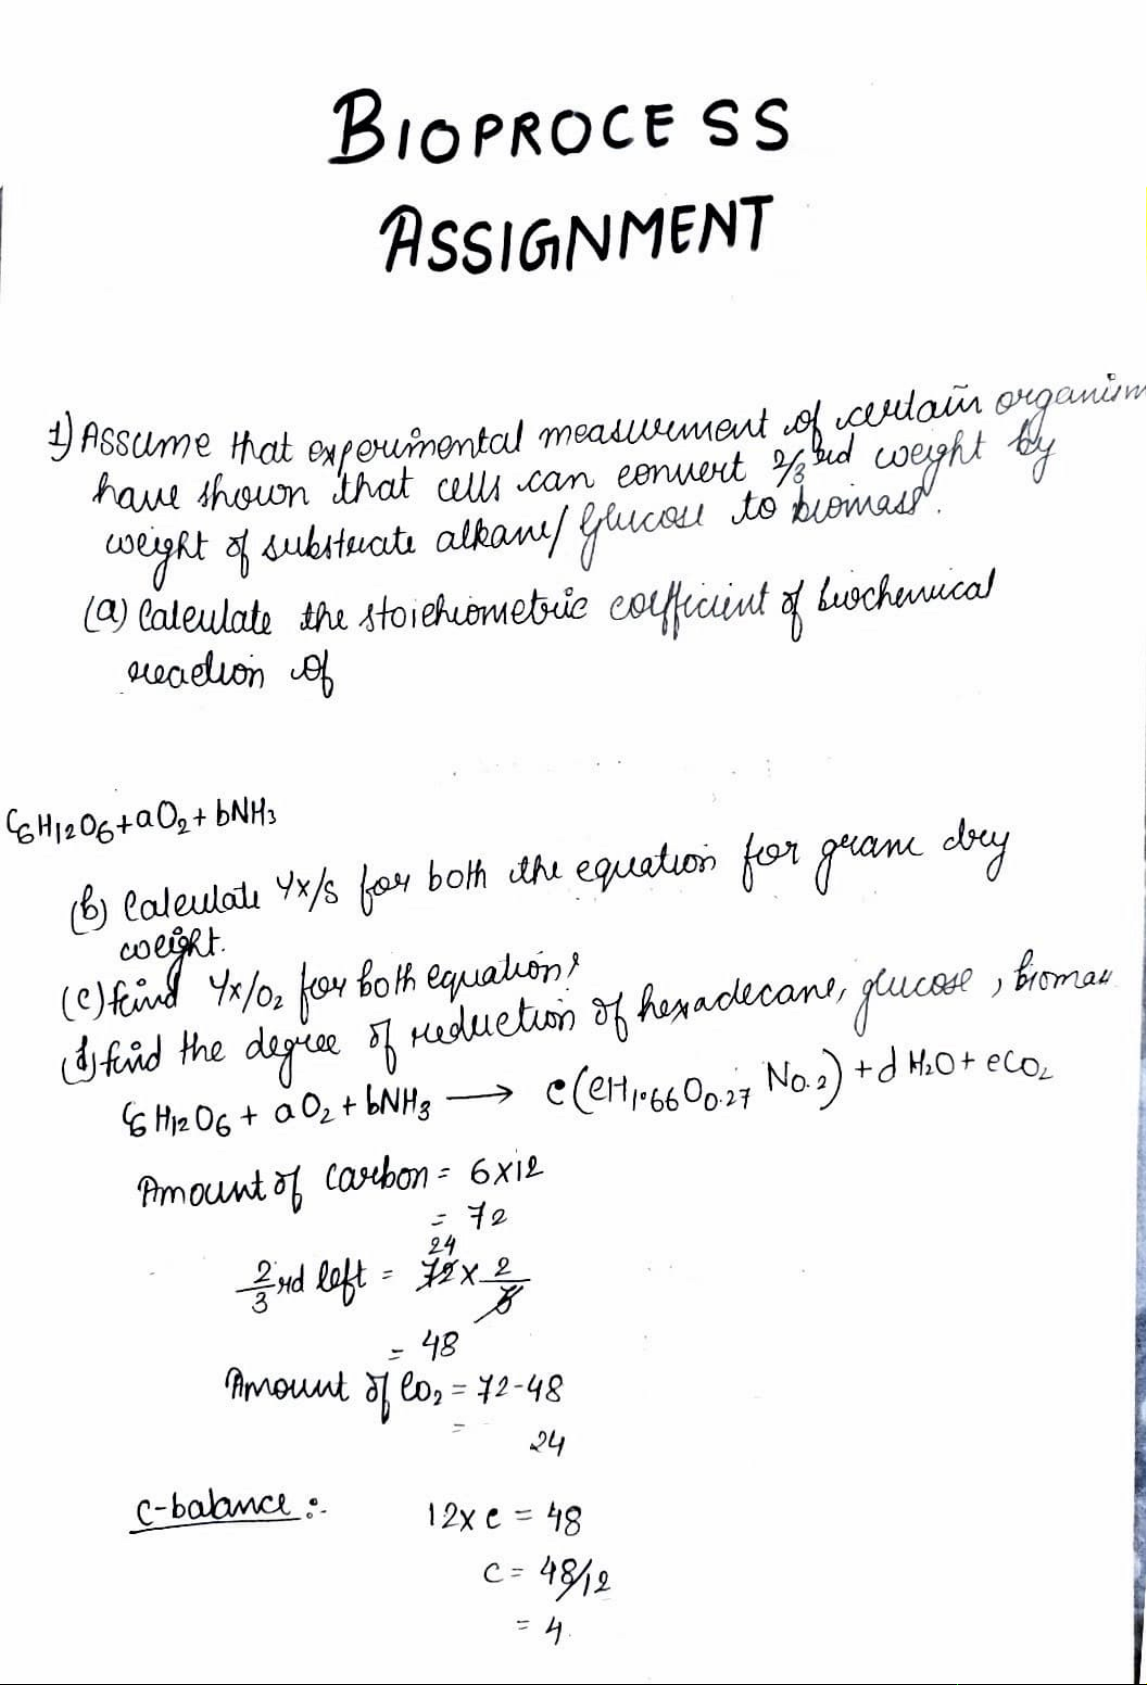 BIOPROCESS
ASSIGNMENT
1) Assume that experimental measurement of certain organism
have shown that cells can convert 2/3 rd weight by
weight of substrate alkane/Glucose to biomass.
(a) Calculate the stoichiometric coefficient of biochemical
reaction of
C6H12O6+aO2+bNH3
(b) Calculate Yx/s for both the equation for gram dry
weight.
(c) find Yx/O2 for both equation?
(d) find the degree of reduction of hexadecane, glucose, biomass
C6H12O6 + aO2 + bNH3 → c(CH1.66O0.27 N0.2) + dH2O + eCO2
Amount of Carbon = 6x12
= 72
24
2/3 rd left = 72 x 2/3
= 48
Amount of CO2 = 72-48
= 24
C-balance :- 12 x c = 48
c = 48/12
= 4.